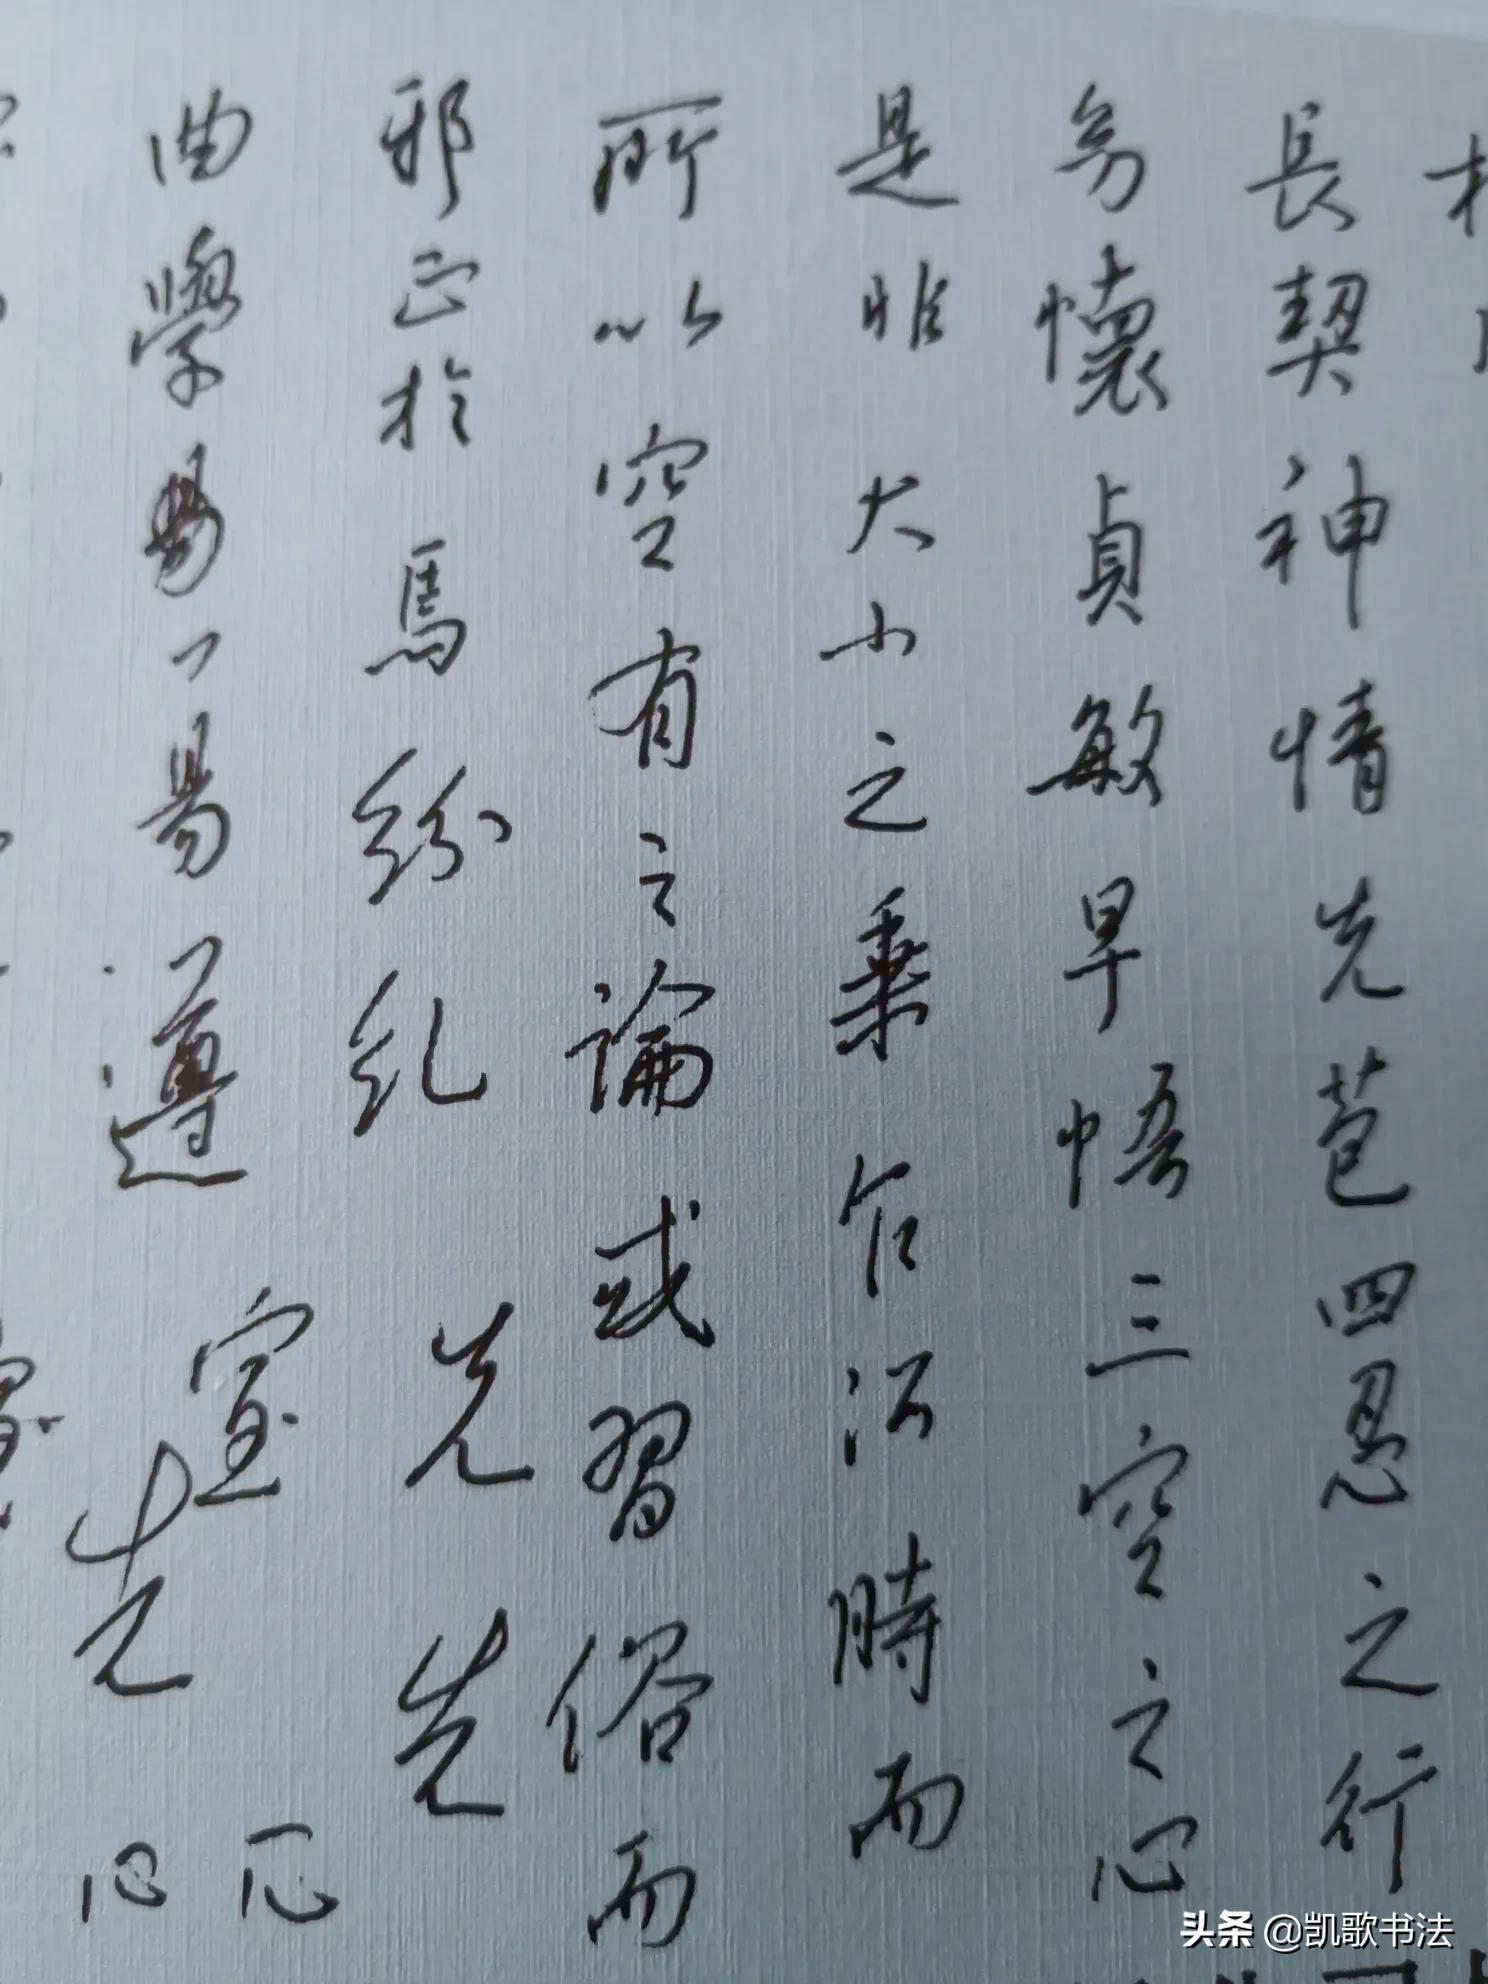 長契神情先苞四忍之行
㓜懷貞敏早悟三空之心
是非大小之乘乍沿時而
所以空有之論或習俗而
邪正於焉紛糺先先
曲學易易遵宜先
心心
头条 @凯歌书法